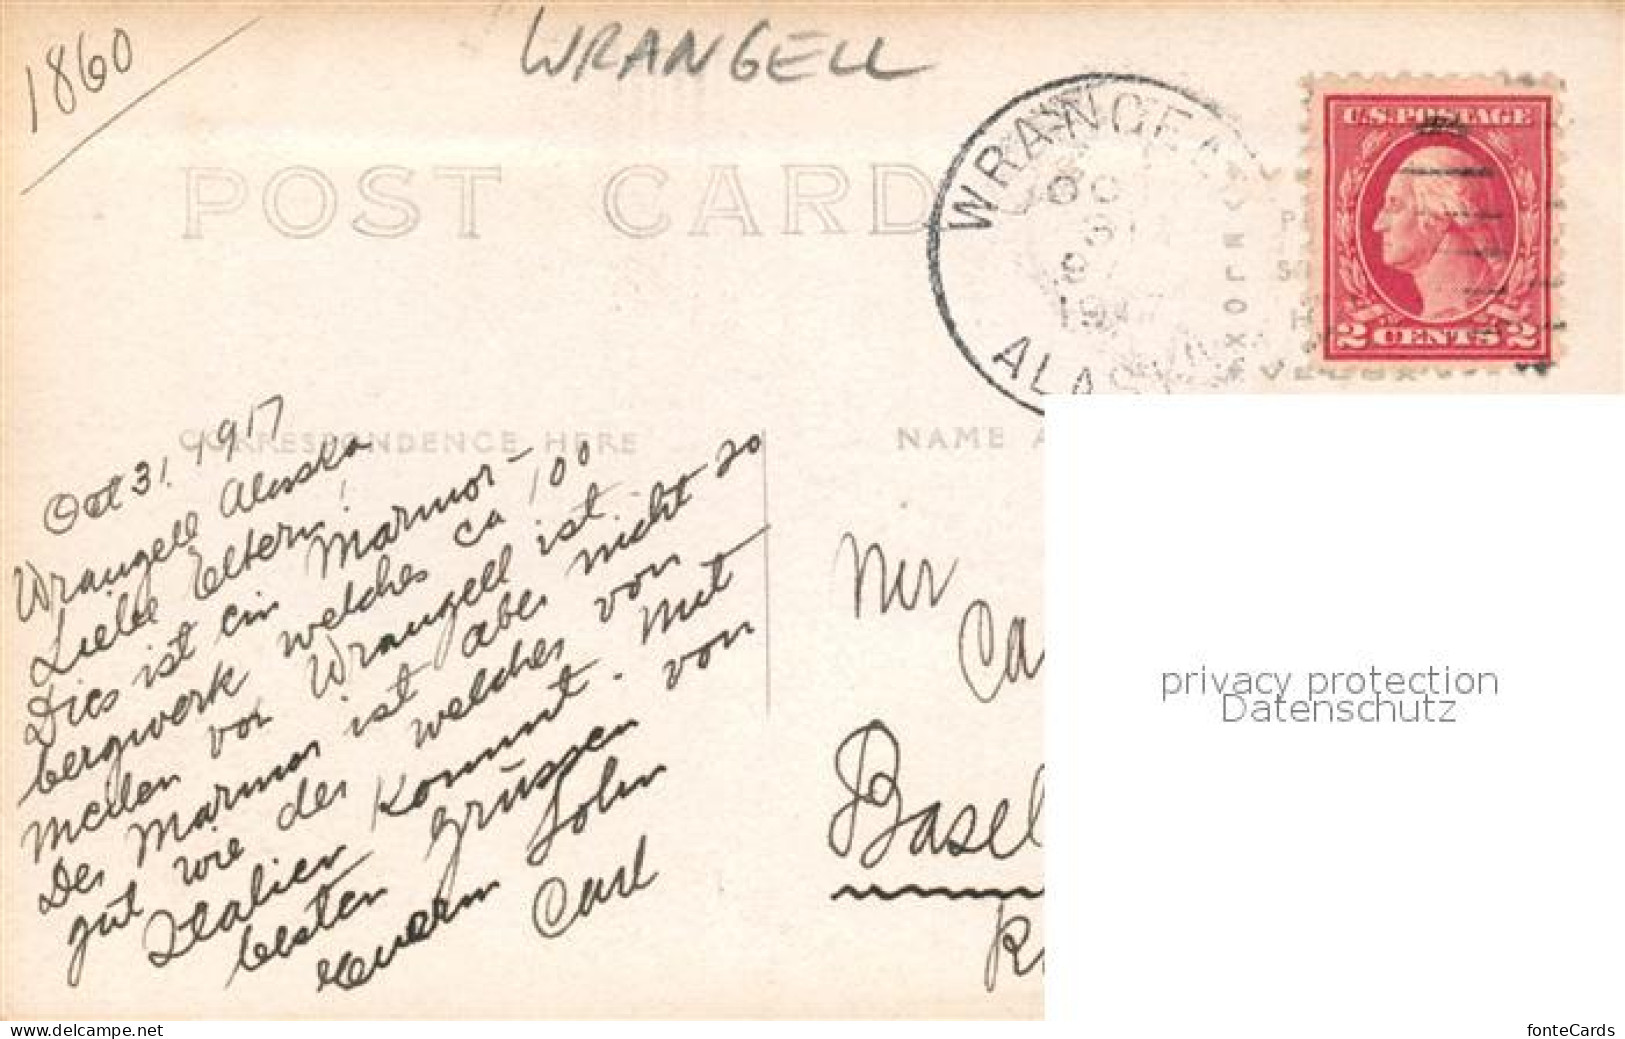 1860
WRANGELL
POST CARD
WRANGE
OC
31
ALAS
U.S.POSTAGE
2 CENTS 2
CORRESPONDENCE HERE
NAME A
Oct 31. 1917
Wrangell Alaska
Liebe Eltern!
Dies ist ein Marmor-
bergwerk welches ca 100
meilen von Wrangell ist.
Der Marmor ist aber nicht so
gut wie der welcher von
Italien kommt. Mit
besten Grüssen von
Euerm Sohn
Carl
Mr
Ca
Basel
privacy protection
Datenschutz
www.delcampe.net
fonteCards